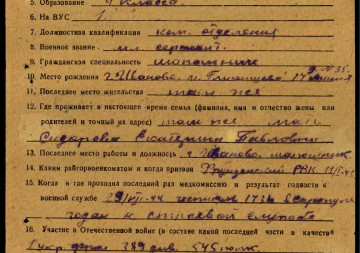 5. Образование 4 класса
6. На ВУС 1
7. Должностная квалификация ком. отделения
8. Военное звание мл. сержант
9. Гражданская специальность
10. Место рождения г. Иваново
11. Последнее место жительства там же
12. Где проживает в настоящее время семья (фамилия, имя и отчество жены или
родителей и точный их адрес) там же мать
Сидорова Екатерина Павловна
13. Последнее место работы и должность г. Иваново,
14. Каким райгорвоенкоматом и когда призван Фрунзенский РВК
15. Когда и где проходил последний раз медкомиссию и результат годности к
военной службе
годен к строевой службе
16. Участие в Отечественной войне (в составе какой последней части и в качестве
1 укр. фронт 389 див. 545 полк